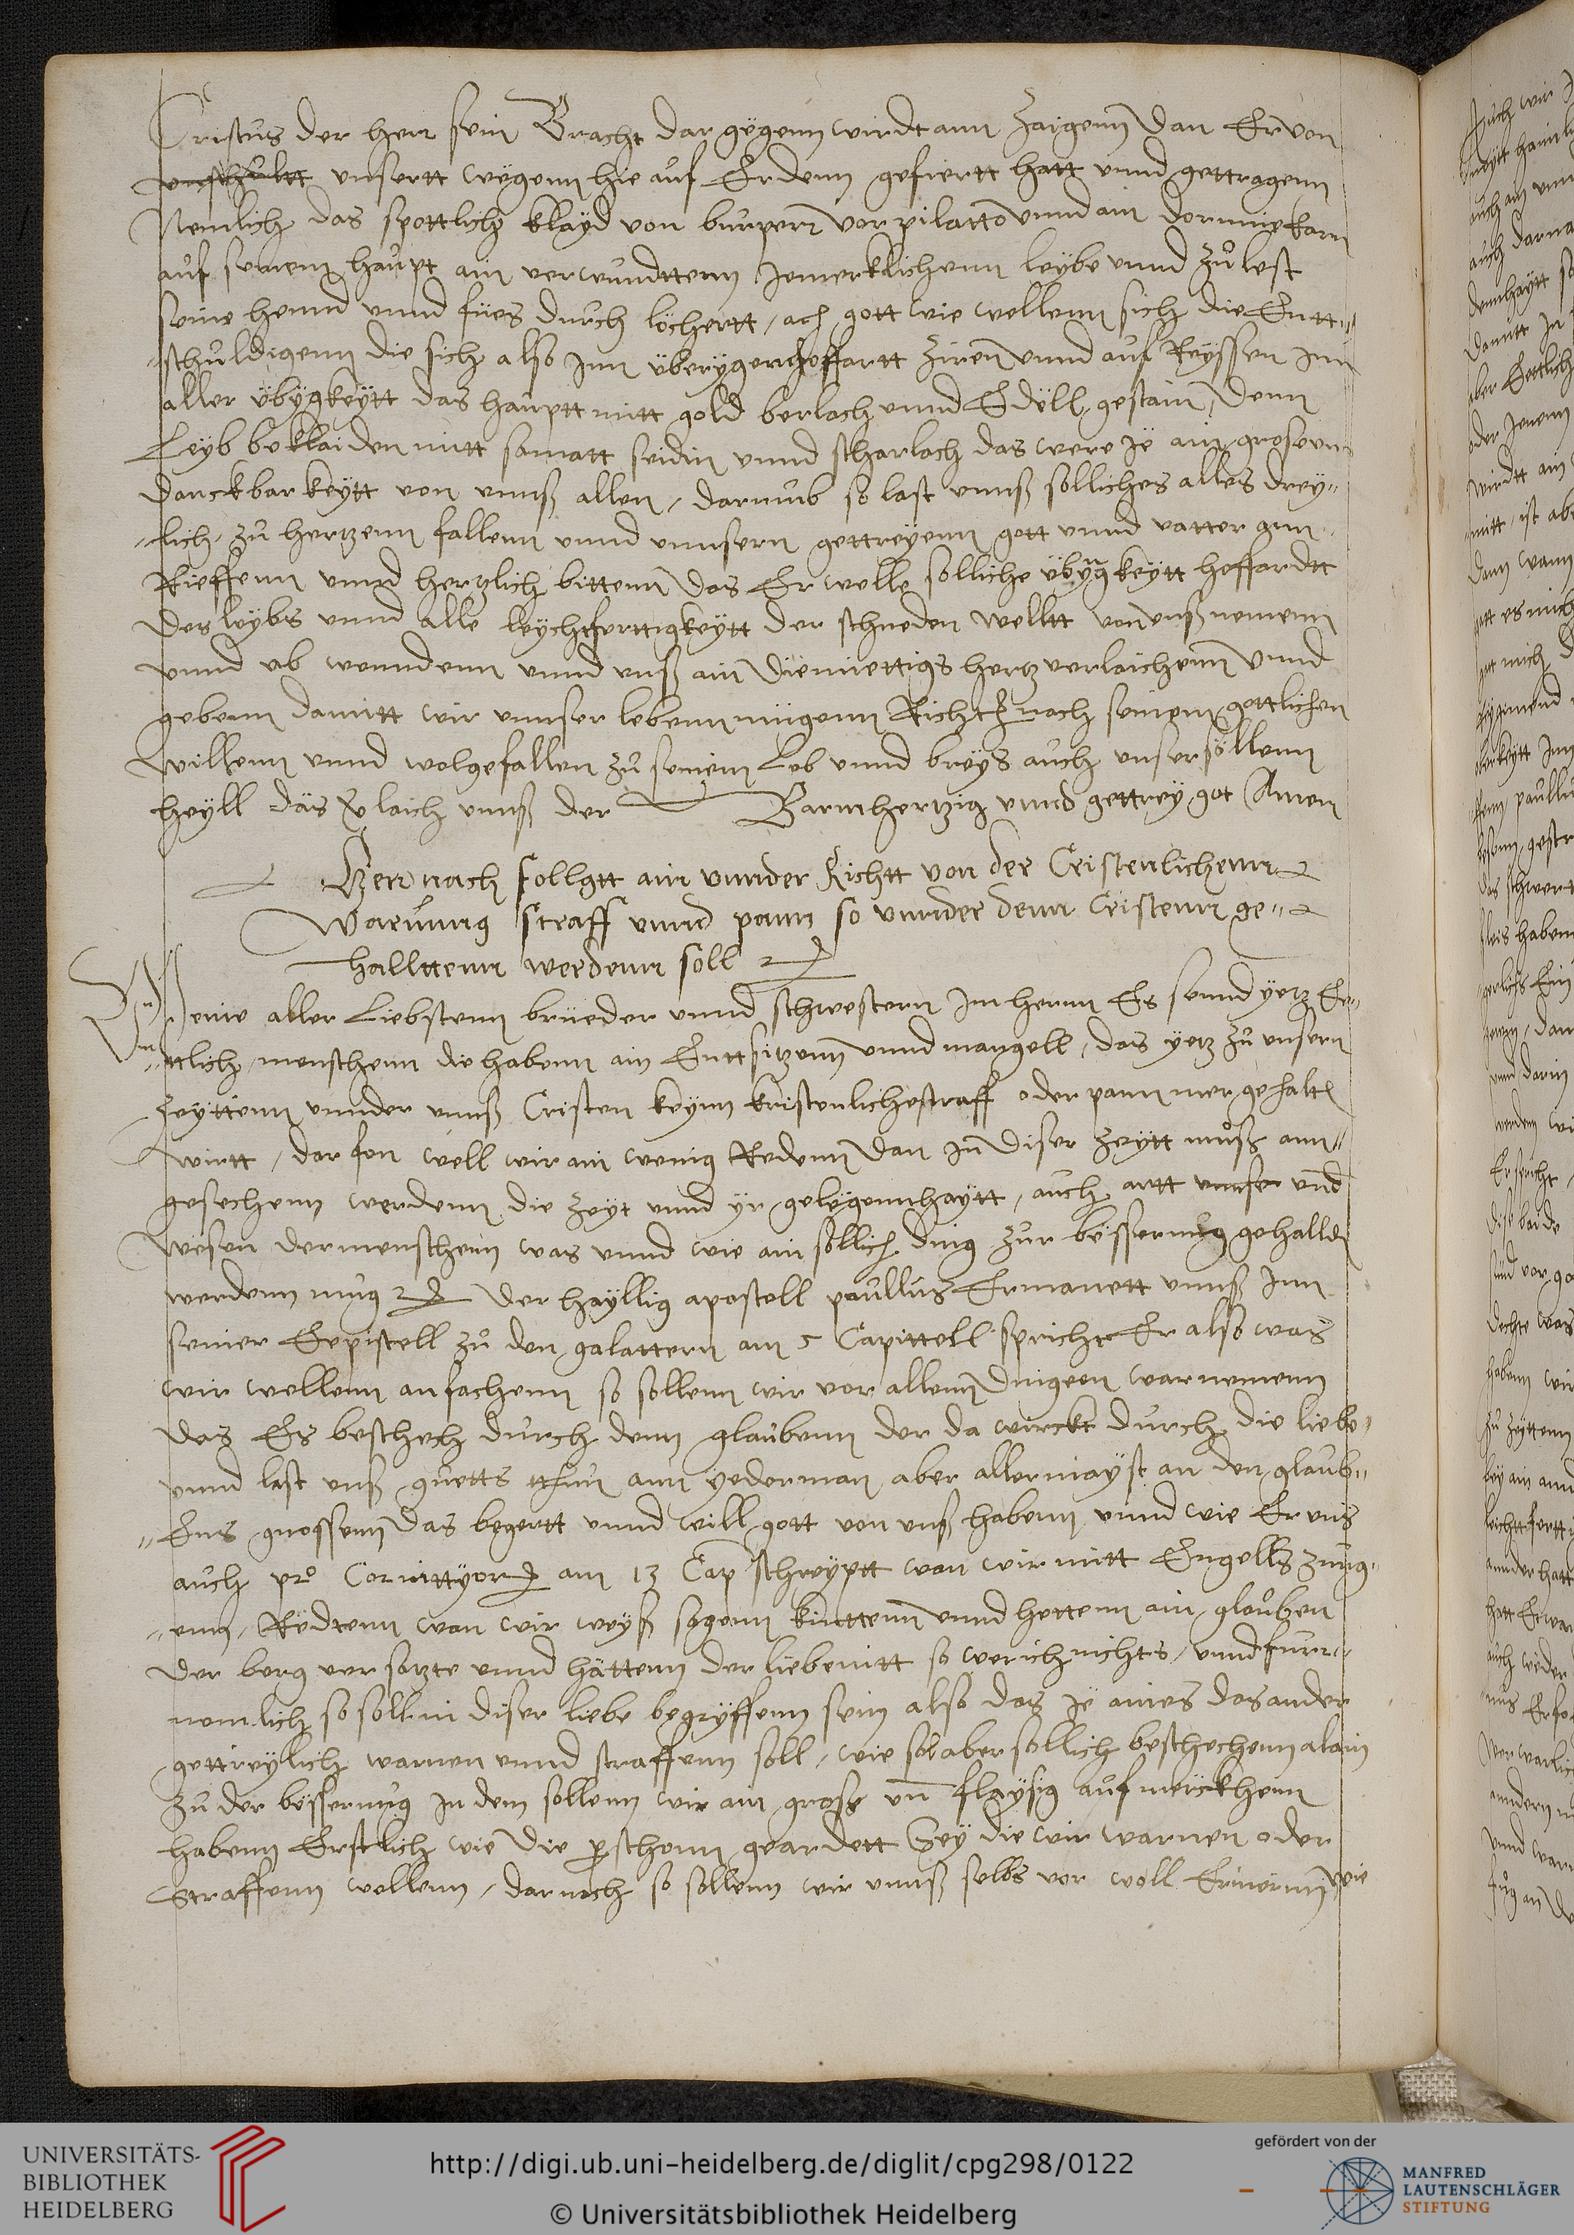 Cristus der herr sein Bracht dar gegenn wirdt ann zaigenn dan Er von
unschultt unsertt wegenn hie auf Erdenn gefiertt hatt unnd gettragenn
Nemlich das spottlich klayd von burper vor pilatto unnd ain dornnie karn
auf seinem haupt ain verwundttenn Jemerklichenn leybe unnd zů lest
seine hennd unnd fües durch löchertt / ach gott wie wellenn sich die Entt-
-schuldigenn die sich also Inn überygen hoffartt züren unnd auf keyssen Inn
aller übygkeytt das hauptt mitt gold berlach unnd Edell gestain / denn
Leyb beklaiden mitt samatt seidin unnd scharlach das were Je ain grose unn
danckbarkeytt von unnß allen / darumb so last unnß solliches alles drey-
-lich zů hertzenn fallenn unnd unnsern gettreyenn gott unnd vatter ann
Rieffenn unnd hertzlich bittenn das Er welle solliche übygkeytt hoffardtt
des leybs unnd alle leychtferttigkeytt der schneden welltt von unß nemenn
unnd ab wenndenn unnd unß ain diemiettigs hertz verlaichenn unnd
gebenn damitt wir unnser lebenn mügenn Richten nach seinem gottlichen
willenn unnd wolgefallen zů seinem Lob unnd breys auch unser söllenn
heyll das verlaich unnß der Barmhertzig unnd gettrey got Amen
Hernnach follgtt ain unnder Richtt von der Cristenlichenn
Warnung straff unnd pann so unnder denn Cristenn ge-
hallttenn werdenn soll
Meine aller Liebstenn brüeder unnd schwestern Im herrn Es sennd yetz Et-
-ttlich menschenn die habenn ain Enttsitzenn unnd mangell / das yetz zů unsern
zeyttenn unnder unnß Cristen keynn kristenliche straff oder pann mer gehaltten
wirtt / dar fon well wir ain wenig Redenn dan In diser zeytt můß ann-
gesechenn werdenn die zeyt unnd yr gelegennhaytt / auch artt unnser unnd
wesen der menschenn was unnd wie ain sollich ding zur besserung gehallden
werdenn mug Der hayllig apostell paullus Ermanett unnß Inn
seiner Eepistell zů den galattern am 5 Capittell spricht Er also was
wir wellenn anfachenn so sollenn wir vor allenn dingeen war nemenn
das Es beschech durch denn glaubenn der da wirckt durch die liebe
unnd last unß guetts thun ann yederman aber allermayst an den glaub-
-Ens gnossenn das begertt unnd will gott von unß habenn unnd wie Er uns
auch pro Corinttyor am 13 Cap schreyptt wan wir mitt Engells zung-
-enn Redtenn wan wir weyß sagenn kunttenn unnd hettenn ain glauben
der berg versatzte unnd hättenn der liebe nitt so wer ich nichts / unnd furr-
nemlich so soll in diser liebe begryffenn sein also das Je aines das ander
gettreylich warnen unnd straffenn soll / wie sol aber sollich beschechenn alain
zů der besserung In dem sollenn wir ain grose unn flaysig auf merckhenn
habenn Erstlich wie die perschonn geardett sey die wir warnen oder
Straffenn wellenn / darnach so sollenn wir unnß selbs vor woll Erinern wie
UNIVERSITÄTS-
BIBLIOTHEK
HEIDELBERG
http://digi.ub.uni-heidelberg.de/diglit/cpg298/0122
© Universitätsbibliothek Heidelberg
gefördert von der
MANFRED
LAUTENSCHLÄGER
STIFTUNG